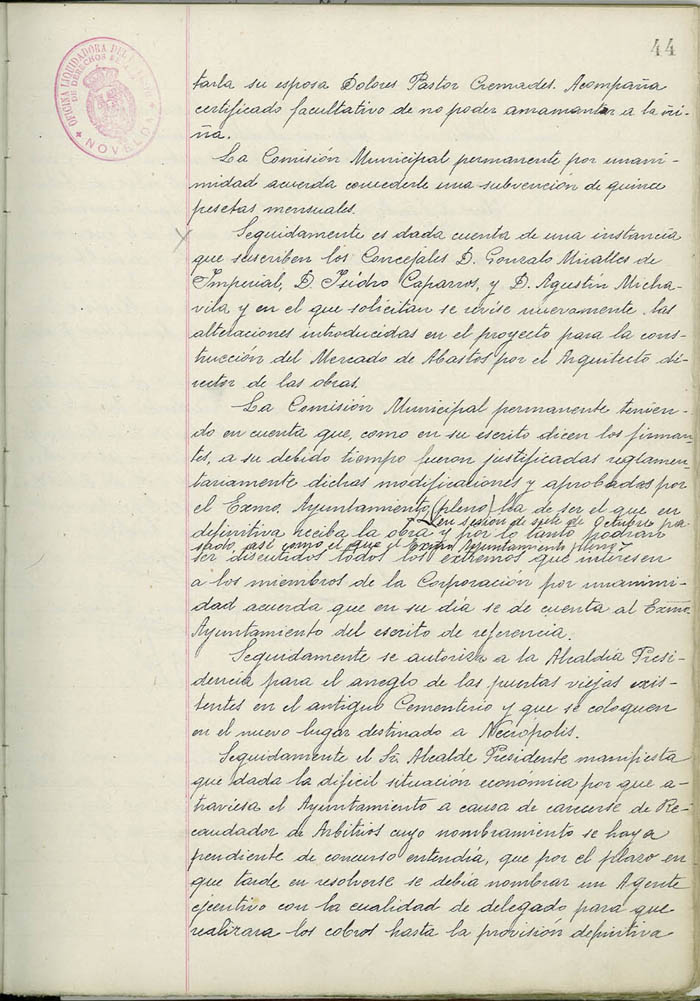 44
OFICINA LIQUIDADORA DEL
DE DERECHOS RE
NOVELDA
tarla su esposa Dolores Pastor Cremades. Acompaña
certificado facultativo de no poder amamantar a la ni-
ña.
La Comisión Municipal permanente por unani-
midad acuerda concederle una subvención de quince
pesetas mensuales.
Seguidamente es dada cuenta de una instancia
que suscriben los Concejales D. Gonzalo Miralles de
Imperial, D. Isidro Caparros, y D. Agustín Micha-
vila y en el que solicitan se revise nuevamente las
alteraciones introducidas en el proyecto para la cons-
trucción del Mercado de Abastos por el Arquitecto di-
rector de las obras.
La Comisión Municipal permanente tenien-
do en cuenta que, como en su escrito dicen los firman-
tes, a su debido tiempo fueron justificadas reglamen-
tariamente dichas modificaciones y aprobadas por
el Exmo. Ayuntamiento (pleno) ha de ser el que en
en sesión de siete de Octubre pa-
definitiva reciba la obra y por lo tanto podrán
sado, así como el que el Exmo Ayuntamiento pleno
ser discutidos todos los extremos que interesen
a los miembros de la Corporación por unanimi-
dad acuerda que en su día se de cuenta al Exmo.
Ayuntamiento del escrito de referencia.
Seguidamente se autoriza a la Alcaldía Presi-
dencia para el arreglo de las puertas viejas exis-
tentes en el antiguo Cementerio y que se coloquen
en el nuevo lugar destinado a Necrópolis.
Seguidamente el Sr. Alcalde Presidente manifiesta
que dada la difícil situación económica por que a-
traviesa el Ayuntamiento a causa de carecerse de Re-
caudador de Arbitrios cuyo nombramiento se haya
pendiente de concurso entendía, que por el plazo en
que tarde en resolverse se debía nombrar un Agente
ejecutivo con la cualidad de delegado para que
realizara los cobros hasta la provisión definitiva